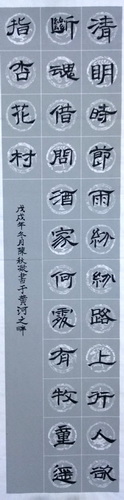 清明時節雨紛紛路上行人欲
斷魂借問酒家何處有牧童遥
指杏花村
戊戌年冬月陳秋敬書于黄河之畔